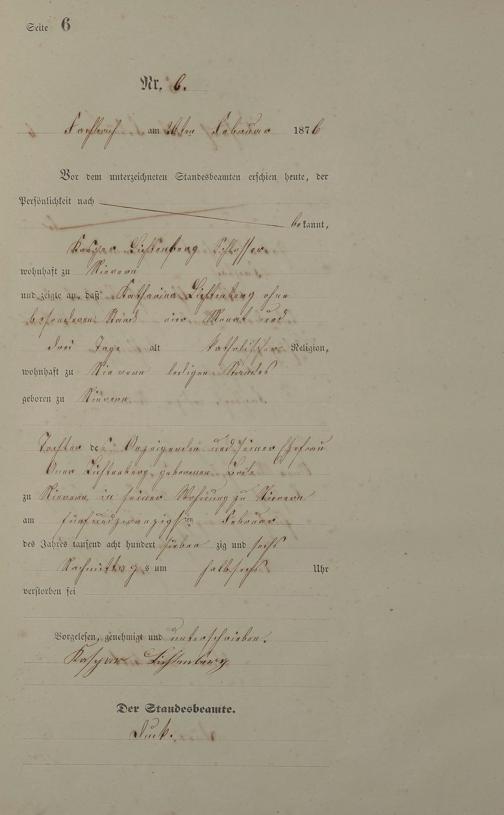 Seite 6
Nr. 6.
Fachbach am 26ten Februar 1876
Vor dem unterzeichneten Standesbeamten erschien heute, der
Persönlichkeit nach
bekannt,
Kaspar Lichtenberg Schlosser
wohnhaft zu Nievern
und zeigte an, daß Katharina Lichtenberg ohne
besonderen Stand ein Monat und
drei Tage alt katholischer Religion,
wohnhaft zu Nievern ledigen Standes
geboren zu Nievern
Tochter des Anzeigenden und seiner Ehefrau
Anna Lichtenberg geborenen
zu Nievern in seiner Wohnung zu Nievern
am fünfundzwanzigsten Februar
des Jahres tausend acht hundert sieben zig und sechs
Nachmittags um halb sechs Uhr
verstorben sei
Vorgelesen, genehmigt und unterschrieben.
Kaspar Lichtenberg
Der Standesbeamte.